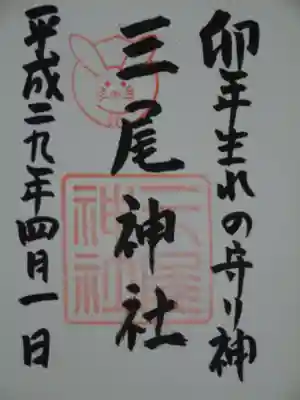 卯年生れの守り神
三尾神社
平成二九年四月一日
三尾神社